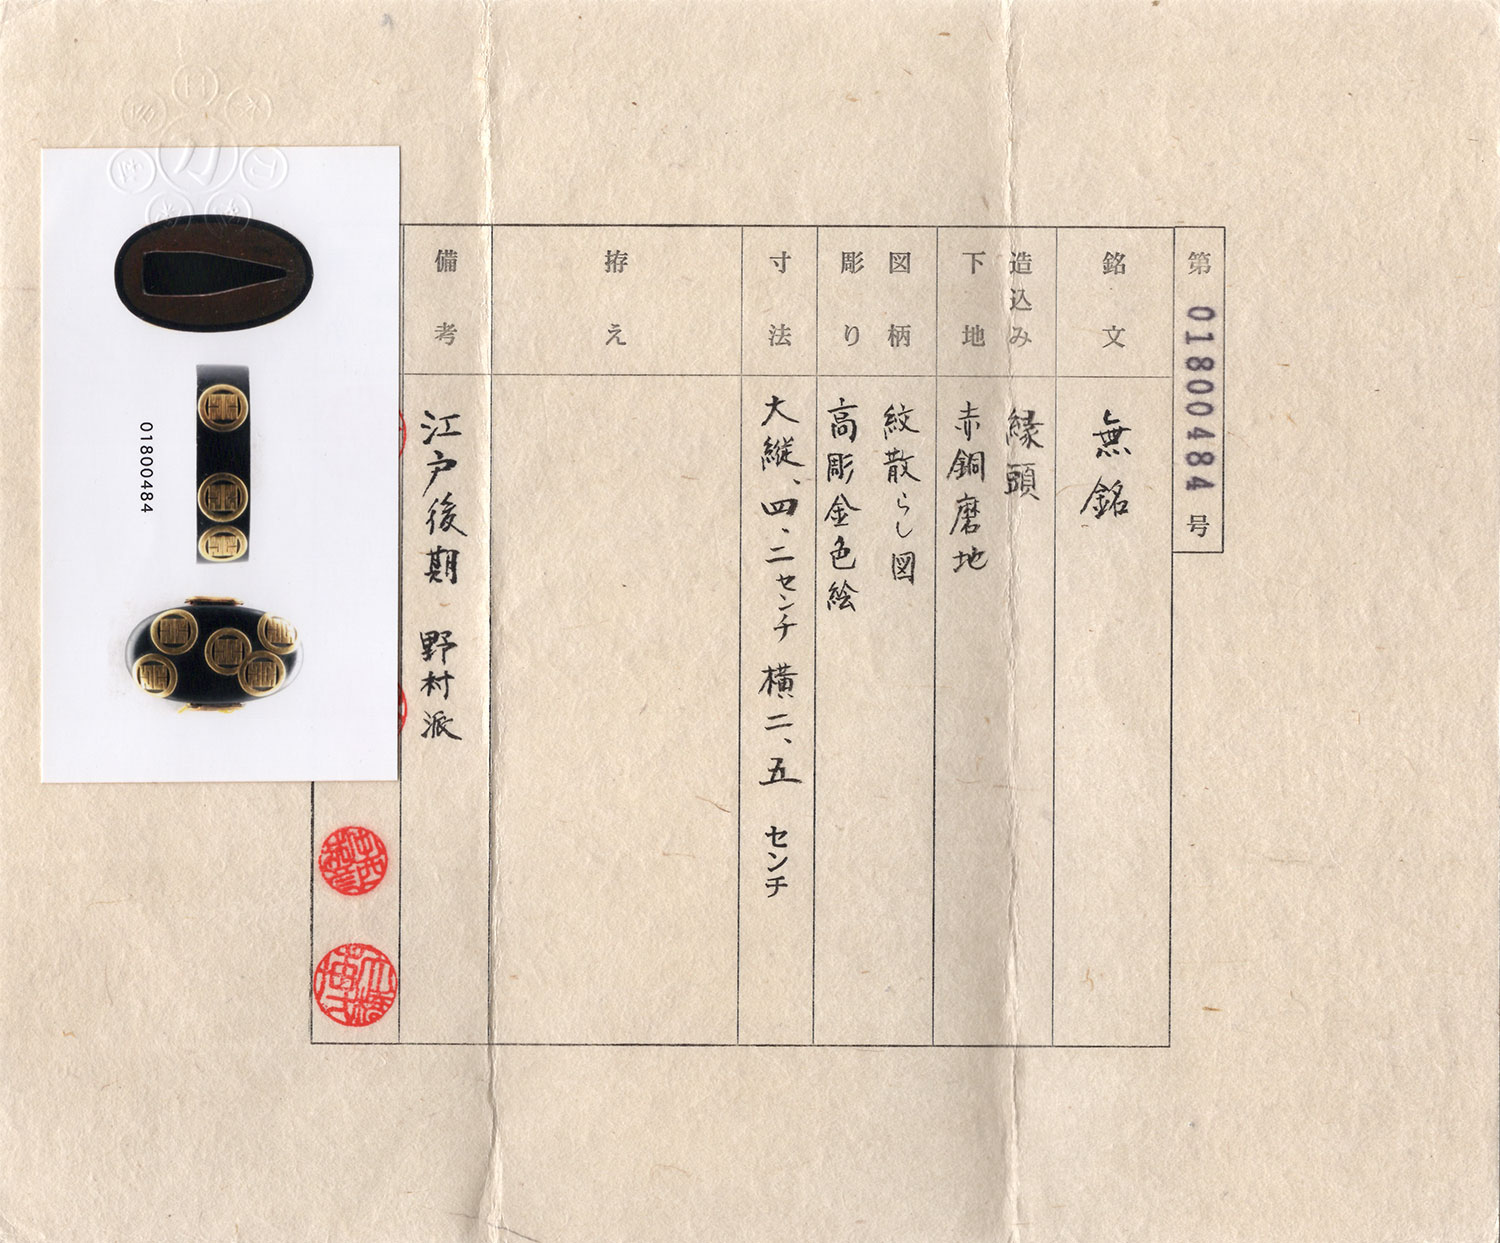 第 01800484 号
銘文
無銘
造込み
縁頭
下地
赤銅磨地
図柄
紋散らし図
彫り
高彫金色絵
寸法
大縦、四、二センチ 横二、五 センチ
拵え
備考
江戸後期 野村派
01800484